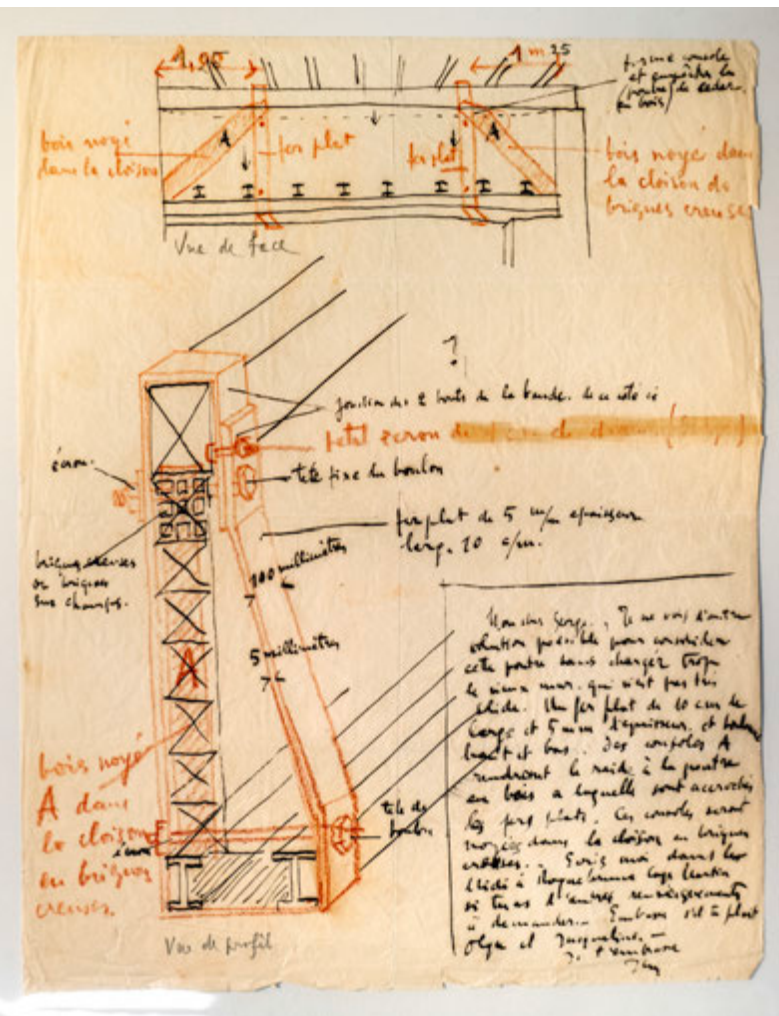 1,95
1m25
forme console
et empêcher la
poutre de céder
en bois
bois noyé
dans la cloison
A
fer plat
fer plat
A
bois noyé dans
la cloison de
briques creuses
Vue de face
?
jonction des 2 bouts de la bande. de ce coté ci
petit ecrou
écrou.
tête fixe du boulon
fer plat de 5 m/m epaisseur
larg. 10 c/m.
briques creuses
ou briques
sur champs.
100 millimètres
5 millimètres
A
bois noyé
A dans
la cloison
en briques
creuses.
écrou
tête de
boulon
Vue de profil
Mon cher Serge, Je ne vois d'autre
solution possible pour consolider
cette poutre sans charger trop
le vieux mur. qui n'est pas très
solide. Un fer plat de 10 cm de
large et 5 mm d'épaisseur. et boulonné
haut et bas. Des consoles A
rendront le raide à la poutre
en bois a laquelle sont accrochés
les fers plats. Ces consoles seront
noyées dans la cloison en briques
creuses. Ecris moi dans les
à Roquebrune Cap Martin
si tu as d'autres renseignements
à demander. Embrasse s'il te plait
Olga et Jacqueline.
Je t'embrasse